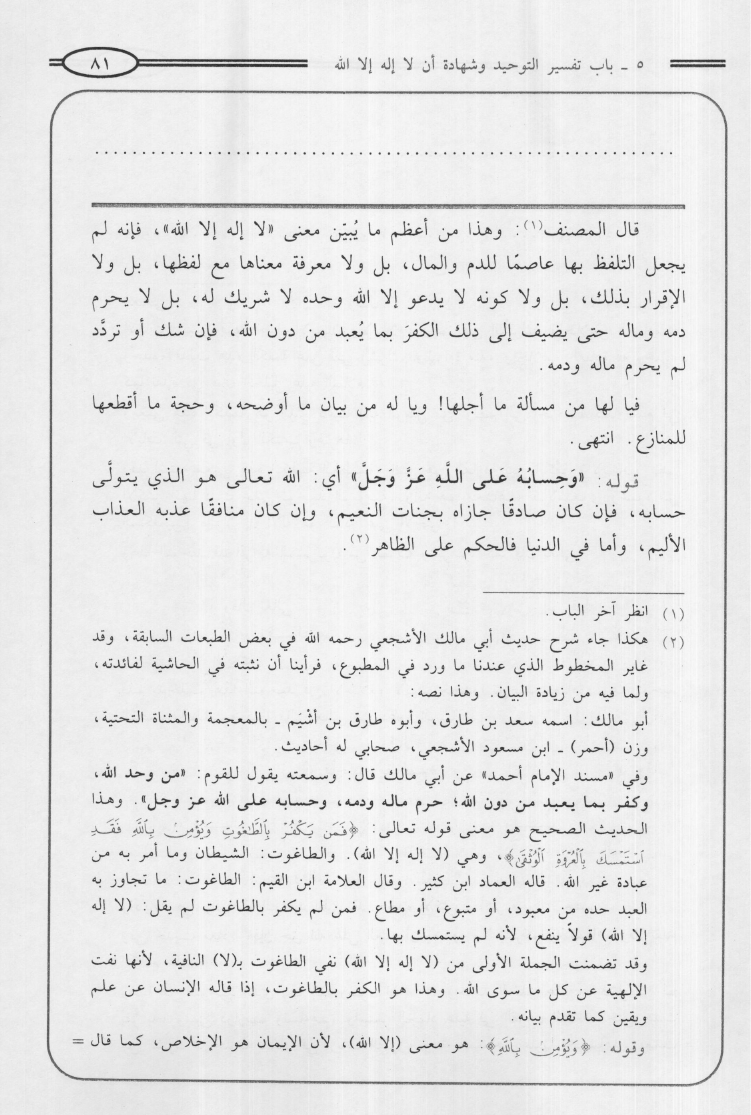 ٥ ـ باب تفسير التوحيد وشهادة أن لا إله إلا الله
٨١
قال المصنف(١): وهذا من أعظم ما يُبيّن معنى «لا إله إلا الله»، فإنه لم
يجعل التلفظ بها عاصمًا للدم والمال، بل ولا معرفة معناها مع لفظها، بل ولا
الإقرار بذلك، بل ولا كونه لا يدعو إلا الله وحده لا شريك له، بل لا يحرم
دمه وماله حتى يضيف إلى ذلك الكفرَ بما يُعبد من دون الله، فإن شك أو تردَّد
لم يحرم ماله ودمه.
فيا لها من مسألة ما أجلها! ويا له من بيان ما أوضحه، وحجة ما أقطعها
للمنازع. انتهى.
قوله: «وَحِسابُهُ عَلى اللَّهِ عَزَّ وَجَلَّ» أي: الله تعالى هو الذي يتولَّى
حسابه، فإن كان صادقًا جازاه بجنات النعيم، وإن كان منافقًا عذبه العذاب
الأليم، وأما في الدنيا فالحكم على الظاهر(٢).
(١) انظر آخر الباب.
(٢) هكذا جاء شرح حديث أبي مالك الأشجعي رحمه الله في بعض الطبعات السابقة، وقد
غاير المخطوط الذي عندنا ما ورد في المطبوع، فرأينا أن نثبته في الحاشية لفائدته،
ولما فيه من زيادة البيان. وهذا نصه:
أبو مالك: اسمه سعد بن طارق، وأبوه طارق بن أشْيَم ـ بالمعجمة والمثناة التحتية،
وزن (أحمر) ـ ابن مسعود الأشجعي، صحابي له أحاديث.
وفي «مسند الإمام أحمد» عن أبي مالك قال: وسمعته يقول للقوم: «من وحد الله،
وكفر بما يعبد من دون الله؛ حرم ماله ودمه، وحسابه على الله عز وجل». وهذا
الحديث الصحيح هو معنى قوله تعالى: ﴿فَمَن يَكْفُرْ بِالطَّاغُوتِ وَيُؤْمِنْ بِاللَّهِ فَقَدِ
اسْتَمْسَكَ بِالْعُرْوَةِ الْوُثْقَىٰ﴾، وهي (لا إله إلا الله). والطاغوت: الشيطان وما أمر به من
عبادة غير الله. قاله العماد ابن كثير. وقال العلامة ابن القيم: الطاغوت: ما تجاوز به
العبد حده من معبود، أو متبوع، أو مطاع. فمن لم يكفر بالطاغوت لم يقل: (لا إله
إلا الله) قولاً ينفع، لأنه لم يستمسك بها.
وقد تضمنت الجملة الأولى من (لا إله إلا الله) نفي الطاغوت بـ(لا) النافية، لأنها نفت
الإلهية عن كل ما سوى الله. وهذا هو الكفر بالطاغوت، إذا قاله الإنسان عن علم
ويقين كما تقدم بيانه.
وقوله: ﴿وَيُؤْمِنْ بِاللَّهِ﴾: هو معنى (إلا الله)، لأن الإيمان هو الإخلاص، كما قال =